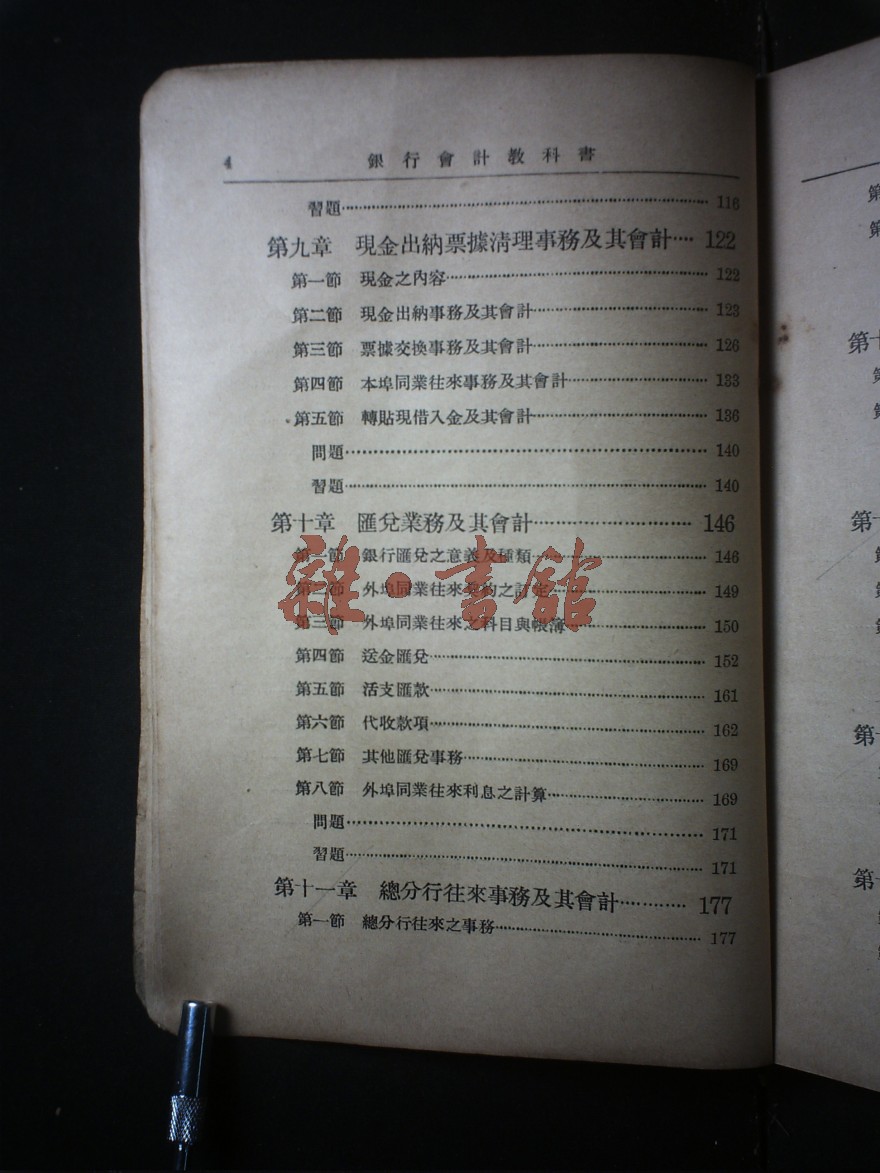 4 銀行會計教科書
習題 116
第九章 現金出納票據淸理事務及其會計 122
第一節 現金之內容 122
第二節 現金出納事務及其會計 123
第三節 票據交換事務及其會計 126
第四節 本埠同業往來事務及其會計 133
第五節 轉貼現借入金及其會計 136
問題 140
習題 140
第十章 匯兌業務及其會計 146
第一節 銀行匯兌之意義及種類 146
第二節 外埠同業往來契約之訂定 149
第三節 外埠同業往來之科目與帳簿 150
第四節 送金匯兌 152
第五節 活支匯款 161
第六節 代收款項 162
第七節 其他匯兌事務 169
第八節 外埠同業往來利息之計算 169
問題 171
習題 171
第十一章 總分行往來事務及其會計 177
第一節 總分行往來之事務 177
雜·書館